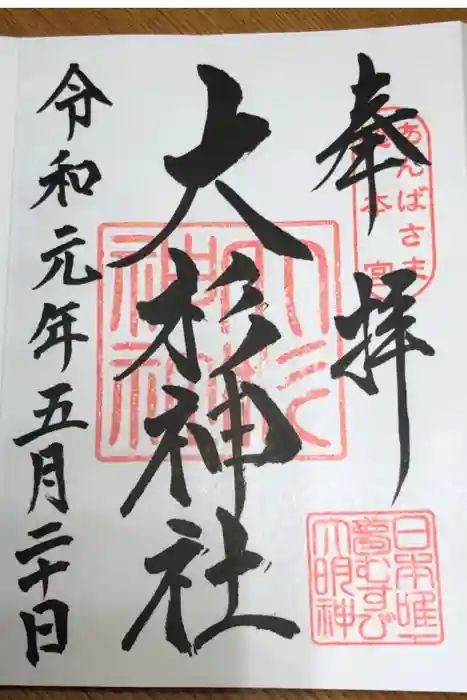 奉拝
あんばさま
総本宮
大杉神社
令和元年五月二十日
日本唯一
夢むすび
大明神